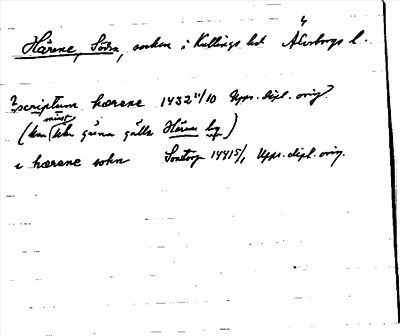 Härene, Södra, socken i Kullings hd Älvsborgs l.
? scriptum hærene 1432 21/10 Upps. dipl. orig?
(kan minst lika gärna gälla Härene by)
i hærene sokn 1441 5/1 Upps. dipl. orig.